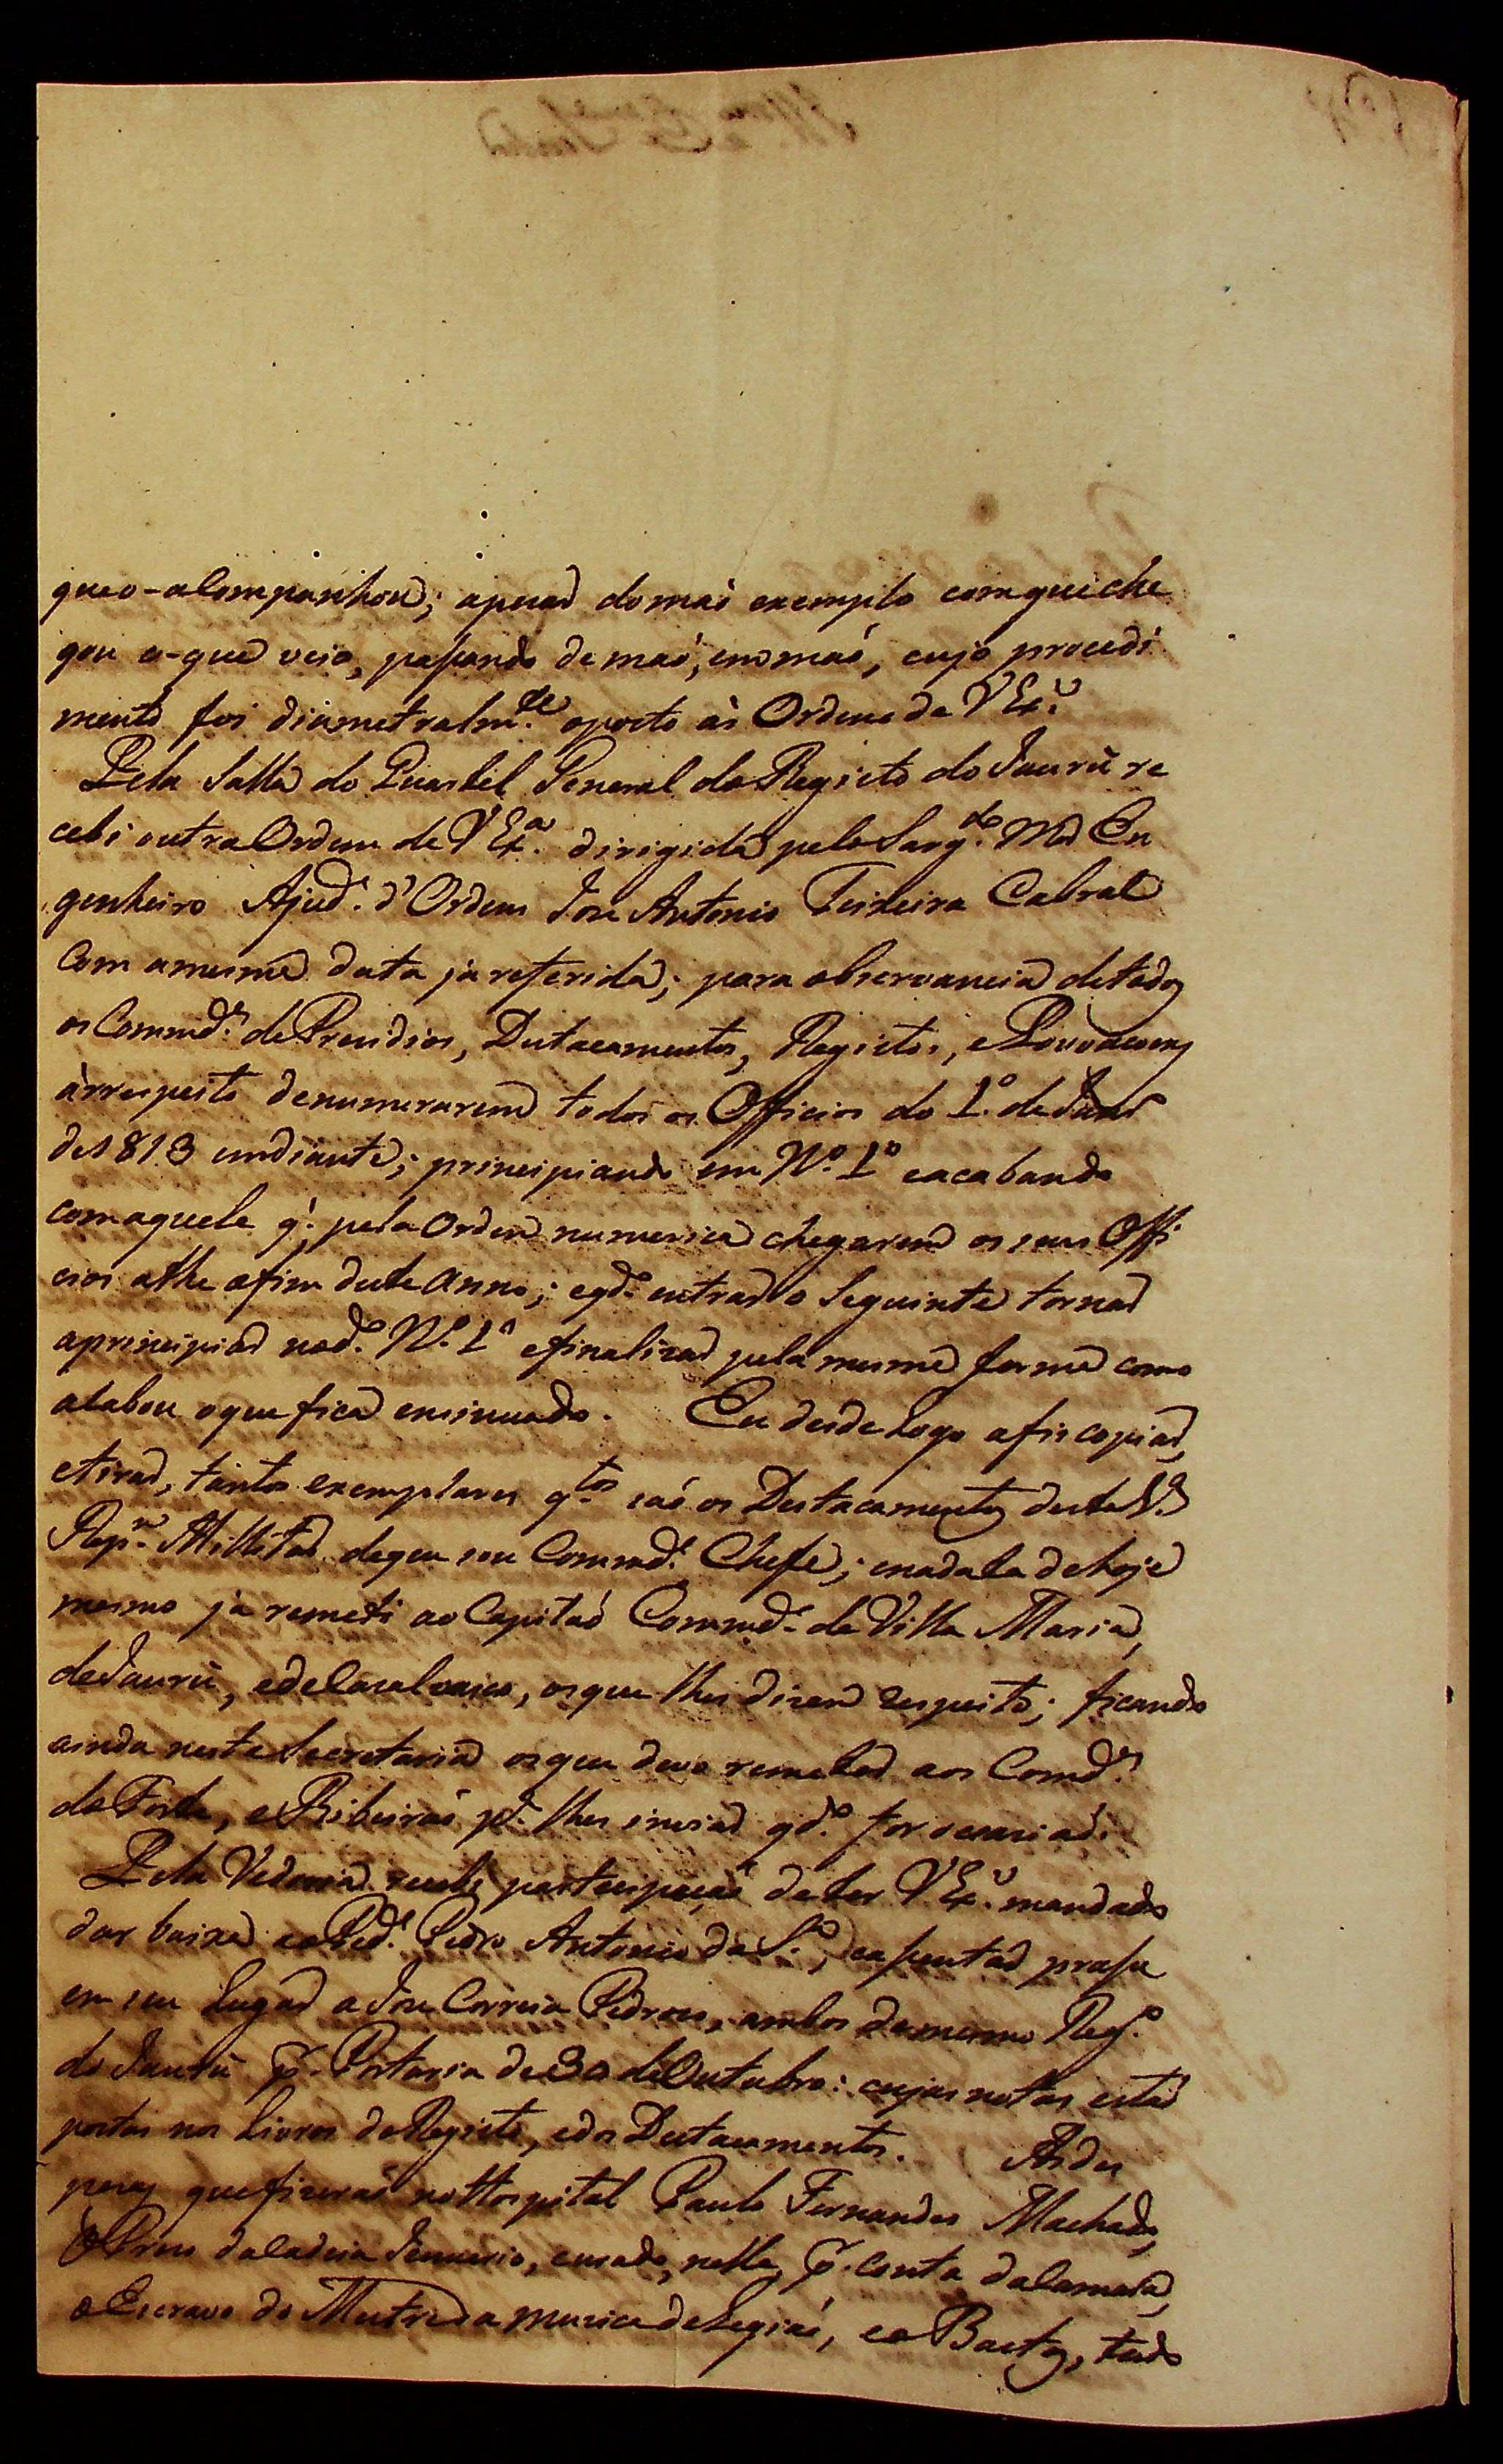 que o-acompanhou; apezar do mao exemplo com que che
gou o-que veio, passando de maõ, em maõ, cujo procedi
mento foi diametralm.te oposto às Ordens de V Ex.a
Pela Salla do Quartel General do Registo do Jaurú re
cebi outra Ordem de V Ex.a dirigida pelo Sarg.to Mór En
genheiro Ajud.e d'Ordens Joze Antonio Teixeira Cabral
Com a mesma data ja referida; para observancia de todos
os Commd.es de Prezidios, Destacamentos, Registos, e Povoaçoens
àrrespeito de numerarem todos os Officios do 1.º de Janr.o
de 1813 emdiante; principiando em N.º 1º e acabando
com aquele q.' pela Ordem numerica chegarem os seus Offi
cios athe o fim deste Anno; e qd.o entrar o Seguinte tornar
aprincipiar no d.º N.º 1º e finalizar pela mesma forma como
acabou o que fica ensinuado. Eu désde logo a fis copiar,
e tirar, tantos exemplares q.tos saõ os Destacamentos desta
Rep.am Millitar de que sou Commd.e Chefe; e na data de hoje
mesmo já remeti ao Capitaõ Commd.e de Villa Maria,
de Jaurú, e de Cacalvasco, os que lhes dizem respeito; ficando
ainda nesta Secretaria os que devo remeter aos Comd.es
do Forte, e Ribeiraõ p.a lhes inviar qd.o for ocaziaõ.
Pela Vedoria recebi participaçaõ de ter V Ex.a mandado
dar baixa ao Ped.e Pedro Antonio da S.a, e assentar prassa
em seu lugar a Joze Correia Pedrozo, ambos do mesmo Reg.o
do Jaurú p.r Portaria de 30 de Outubro: cujas notas estaõ
postas nos Livros do Registo, e dos Destacamentos. As des
pezas que fizeraõ no Hospital Paulo Fernandes Machado,
o Prezo da Cadeia Jenuario, curado, nelle, p.r conta da Camara,
o Escravo do Mestre da Muzica de Legiaõ, e o Bastos, tudo